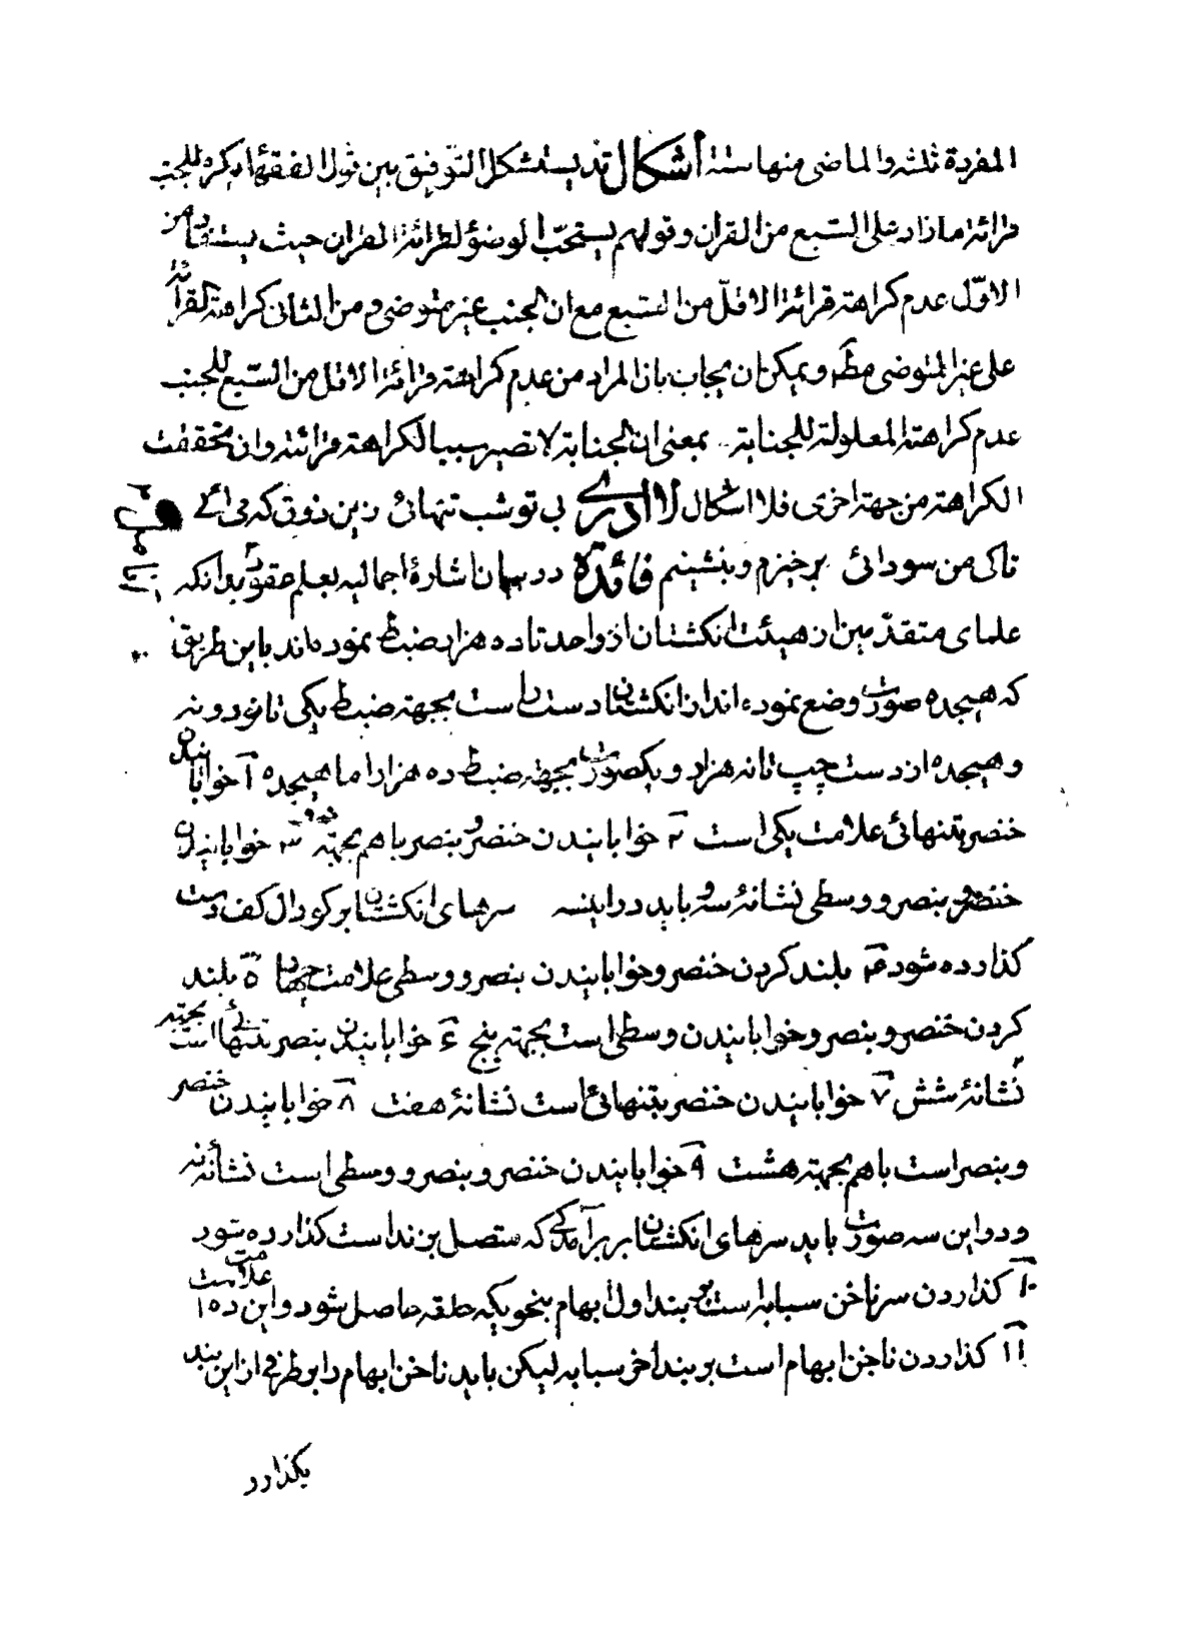 المفردة ثلثه والماضی منها سته اشکال قد یستشکل التوفیق بین قول الفقهاء یکره للجنب
قرائة مازاد علی السبع من القران وقولهم یستحب الوضؤ لقرائة القران حیث یستفاد من
الاوّل عدم کراهته قرائة الاقلّ من السبع مع ان الجنب غیر متوضی ومن الثانی کراهته القرائة
علی غیر المتوضی مطّ ویمکن ان یجاب بان المراد من عدم کراهته قرائة الاقل من السبع للجنب
عدم کراهته المعلولة للجنابة بمعنی ان الجنابة لا تصیر سببا لکراهة قرائته وان تحققت
الکراهته من جهة اخری فلا اشکال لا ادری بی تو شب تنهائی زین ذوق که می ائی
تاکی من سودائی برخیزم وبنشینم فائدة در بیان اشارۀ اجمالیه بعلم عقود بدانکه
علمای متقدّمین از هیئت انکشتان از واحد تا ده هزار ضبط نموده اند باین طریق
که هیجده صورت وضع نموده اند از انکشتان دست راست بجهته ضبط یکی تا نود و نه
و هیجده از دست چپ تا نه هزار و یکصورت بجهته ضبط ده هزار اما هیجده ۱ خوابانیدن
خنصر بتنهائی علامت یکی است ۲ خوابانیدن خنصر و بنصر باهم بجهته دو ۳ خوابانیدن
خنصر و بنصر و وسطی نشانۀ سه و باید در اینسه سرهای انکشتان بر کودال کف دست
کذارده شود ۴ بلند کردن خنصر و خوابانیدن بنصر و وسطی علامت چهار ۵ بلند
کردن خنصر و بنصر و خوابانیدن وسطی است بجهته پنج ۶ خوابانیدن بنصر بتنهائی است بجهته
نشانۀ شش ۷ خوابانیدن خنصر بتنهائی است نشانۀ هفت ۸ خوابانیدن خنصر
و بنصر است باهم بجهته هشت ۹ خوابانیدن خنصر و بنصر و وسطی است نشانۀ نه
و در این سه صورت باید سرهای انکشتان بر برآمدکی که متصل بزند است کذارده شود
۱۰ کذاردن سر ناخن سبابه است بر بند اول ابهام بنحویکه حلقه حاصل شود و این علامت ده است
۱۱ کذاردن ناخن ابهام است بر بند اخر سبابه لیکن باید ناخن ابهام را بر طرفی از این بند
بکذارد